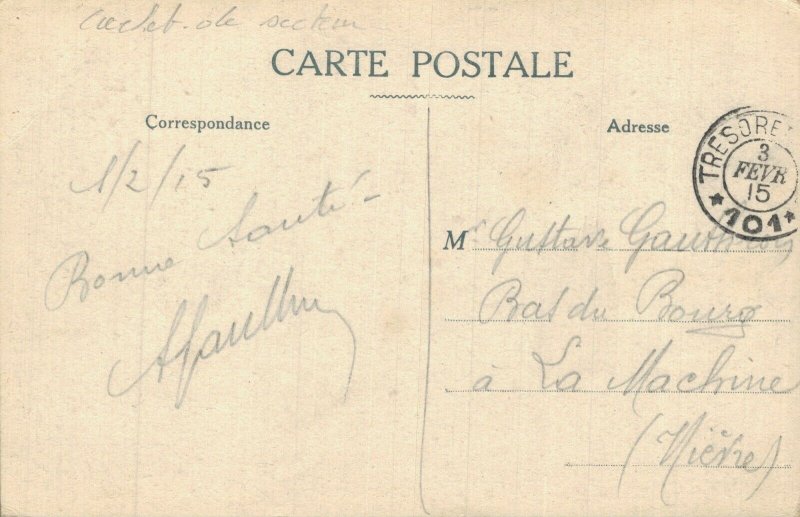 Cachet de secteur
CARTE POSTALE
Correspondance
Adresse
TRESOR E
3
FEVR
15
*101*
1/2/15
Bonne Santé
M Gustave
Bas du Bourg
à La Machine
(Nièvre)